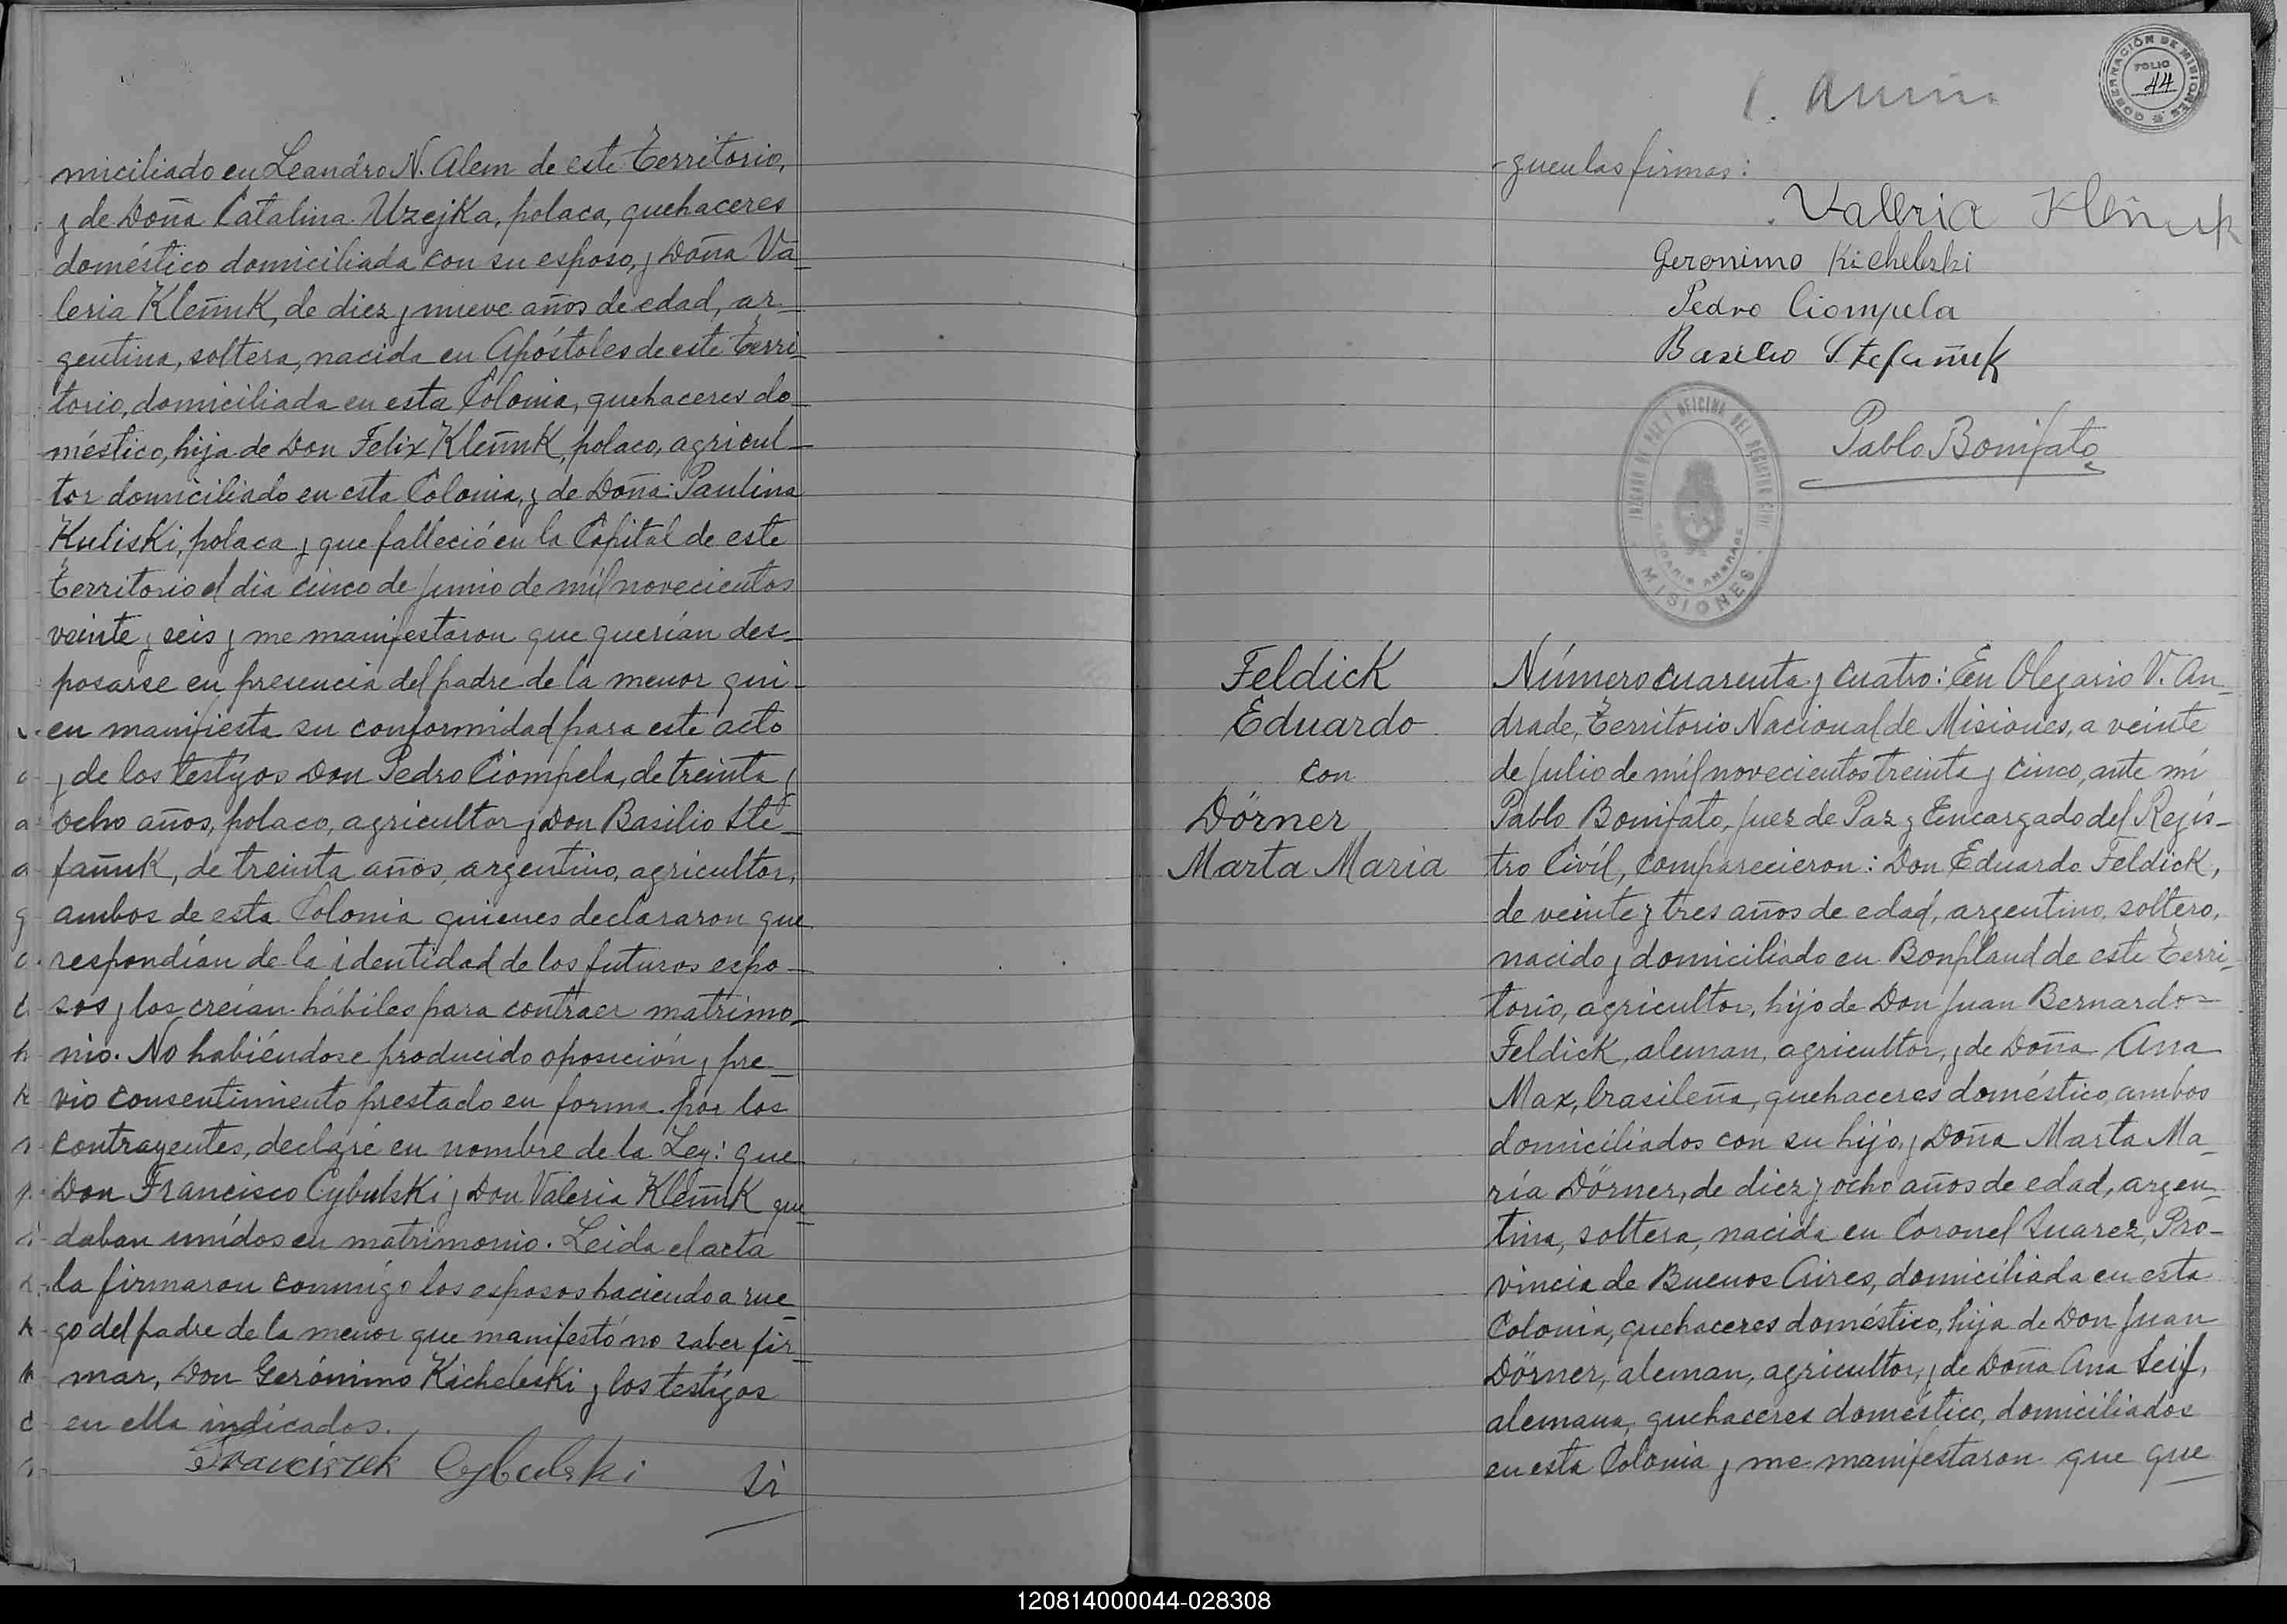 miciliado en Leandro N. Alem de este Territorio,
y de Doña Catalina Uzejka, polaca, quehaceres
doméstico domiciliada con su esposo, y Doña Va-
leria Kleñuk, de diez y nueve años de edad, ar-
gentina, soltera, nacida en Apóstoles de este Terri-
torio, domiciliada en esta Colonia, quehaceres do-
méstico, hija de Don Felix Kleñuk, polaco, agricul-
tor domiciliado en esta Colonia, y de Doña: Paulina
Kuliski, polaca y que falleció en la Capital de este
Territorio el dia cinco de Junio de mil novecientos
veinte y seis y me manifestaron que querían des-
posarse en presencia del padre de la menor qui-
en manifiesta su conformidad para este acto
y de los testigos Don Pedro Ciompela, de treinta y
ocho años, polaco, agricultor y Don Basilio Ste-
fañuk, de treinta años, argentino, agricultor,
ambos de esta Colonia quienes declararon que
respondían de la identidad de los futuros espo-
sos y los creían hábiles para contraer matrimo-
nio. No habiéndose producido oposición y pre-
vio consentimiento prestado en forma por los
contrayentes, declaré en nombre de la Ley: que
Don Francisco Cybulski y Don Valeria Kleñuk que-
daban unidos en matrimonio. Leida el acta
la firmaron conmigo los esposos haciendo a rue-
go del padre de la menor que manifestó no saber fir-
mar, Don Gerónimo Kicheleski y los testigos
en ella indicados.
Franciszek Cybulski si
-guen las firmas:
Valeria Kleñuk
Geronimo Kicheleski
Pedro Ciompela
Basilio Stefañuk
Pablo Bonifato
GOBERNACIÓN DE MISIONES
FOLIO
44
JUZGADO DE PAZ Y OFICINA DEL REGISTRO CIVIL
OLEGARIO ANDRADE
MISIONES
Feldick
Eduardo
con
Dörner
Marta Maria
Número cuarenta y cuatro: En Olegario V. An-
drade, Territorio Nacional de Misiones, a veinte
de Julio de mil novecientos treinta y cinco, ante mi
Pablo Bonifato, Juez de Paz y Encargado del Regis-
tro Civíl, comparecieron: Don Eduardo Feldick,
de veinte y tres años de edad, argentino, soltero,
nacido y domiciliado en Bonpland de este Terri-
torio, agricultor, hijo de Don Juan Bernardo
Feldick, aleman, agricultor, y de Doña Ana
Max, brasileña, quehaceres doméstico, ambos
domiciliados con su hijo, y Doña Marta Ma-
ría Dörner, de diez y ocho años de edad, argen-
tina, soltera, nacida en Coronel Suarez, Pro-
vincia de Buenos Aires, domiciliada en esta
Colonia, quehaceres doméstico, hija de Don Juan
Dörner, aleman, agricultor, y de Doña Ana Seif,
alemana, quehaceres doméstico, domiciliados
en esta Colonia y me manifestaron que que
120814000044-028308